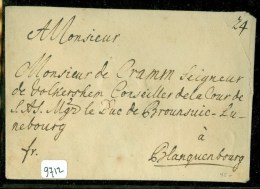 24
A Monsieur
Monsieur de Cramm Seigneur
de Volkershem Conseiller de la Cour de
S. AS. Mgr le Duc de Brounsuic-Lu-
nebourg
à
fr. Blanquenbourg
9712